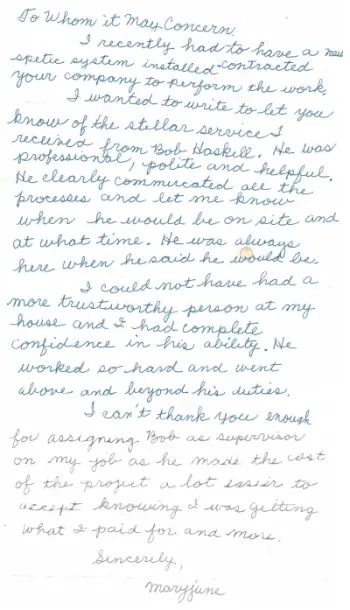 To Whom it May Concern,
I recently had to have a new
spetic system installed contracted
your company to perform the work.
I wanted to write to let you
know of the stellar service I
received from Bob Haskell. He was
professional, polite and helpful.
He clearly commucated all the
processes and let me know
when he would be on site and
at what time. He was always
here when he said he would be.
I could not have had a
more trustworthy person at my
house and I had complete
confidence in his ability. He
worked so hard and went
above and beyond his duties.
I can't thank you enough
for assigning Bob as supervisor
on my job as he made the cost
of the project a lot easier to
accept knowing I was getting
what I paid for and more.
Sincerely,
Maryjune